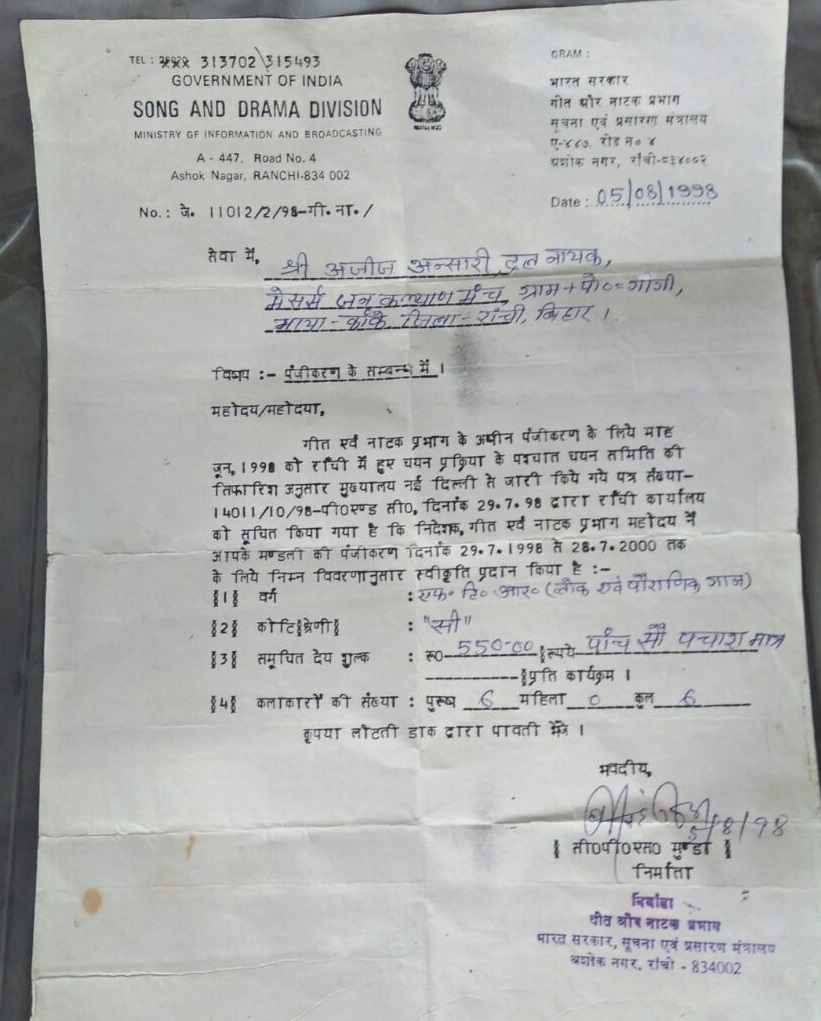 TEL : 313702\315493
GOVERNMENT OF INDIA
SONG AND DRAMA DIVISION
MINISTRY OF INFORMATION AND BROADCASTING
A - 447, Road No. 4
Ashok Nagar, RANCHI-834 002
No.: जे. 11012/2/98-गी. ना. /
GRAM :
भारत सरकार
गीत और नाटक प्रभाग
सूचना एवं प्रसारण मंत्रालय
ए-४४७, रोड न० ४
अशोक नगर, राँची-८३४००२
Date : 05/08/1998
सेवा में,
श्री अजीज अन्सारी, दल नायक,
मेसर्स जन कल्याण मंच, ग्राम+पो०-
कांके, जिला-रांची, बिहार ।
विषय :- पंजीकरण के सम्बन्ध में ।
महोदय/महोदया,
गीत एवं नाटक प्रभाग के अधीन पंजीकरण के लिये माह
जून, 1998 को राँची में हुए चयन प्रक्रिया के पश्चात चयन समिति की
सिफारिश अनुसार मुख्यालय नई दिल्ली से जारी किये गये पत्र संख्या-
14011/10/98-पी0एण्ड सी0, दिनांक 29.7.98 द्वारा राँची कार्यालय
को सूचित किया गया है कि निदेशक, गीत एवं नाटक प्रभाग महोदय नें
आपके मण्डली की पंजीकरण दिनांक 29.7.1998 से 28.7.2000 तक
के लिये निम्न विवरणानुसार स्वीकृति प्रदान किया है :-
§1§ वर्ग : एफ० टि० आर० (लोक एवं पौराणिक )
§2§ कोटि§श्रेणी§ : "सी"
§3§ समुचित देय शुल्क : रू0 550-00 §रूपये पांच सौ पचास मात्र
----------§प्रति कार्यक्रम ।
§4§ कलाकारों की संख्या : पुरूष 6 महिला 0 कुल 6
कृपया लौटती डाक द्वारा पावती भेंजे ।
भवदीय,
5/8/98
§ सी0पी0एस0 मुण्डा §
निर्माता
निर्माता
गीत और नाटक प्रभाग
भारत सरकार, सूचना एवं प्रसारण मंत्रालय
अशोक नगर, राँची - 834002